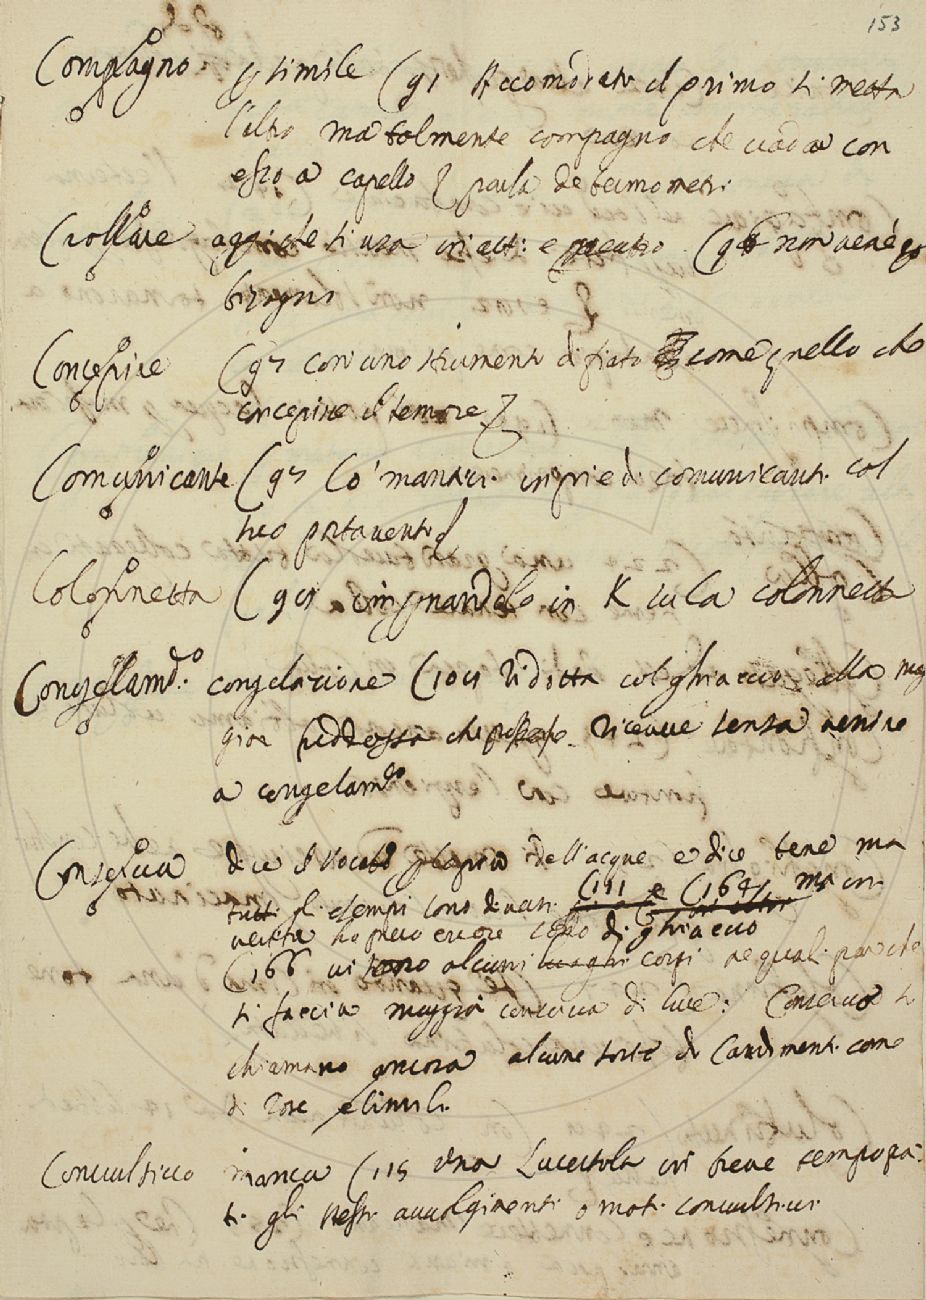 153
Compagno p simile C 91 Accomodato il primo si metta
l'altro ma talmente compagno che vada con
esso a capello parla de termometri
Crollare aggiate si usa in att: e neutro C 96 non ven è
bisogno
Concepire C 97 con uno strumento di fiato come quello che
concepire il temore
Comunicante C 97 Co' mantici in piedi comunicanti col
suo portavento
Colonnetta C 98 impernandolo in K su la colonnetta
Congelamto. congelazione C 101 ridotta col ghiaccio alla mag
gior freddezza che possa ricevere senza venire
a congelamto
Conserva dice il Vocabo propria dell'acque e dice bene ma
tutti gl'esempi sono diversi C 111 e C 164 ma in
verità ho preso errore di ghiaccio
C 166 vi sono alcuni luoghi corpi ne quali par che
si faccia maggior conserva di luce: Conserva si
chiamano ancora alcune sorte di Condimenti come
di rose e simili.
Convulsivo manca C 115 Una Lucertola in breve tempo pa
ti gli stessi avvolgimenti o moti convulsivi